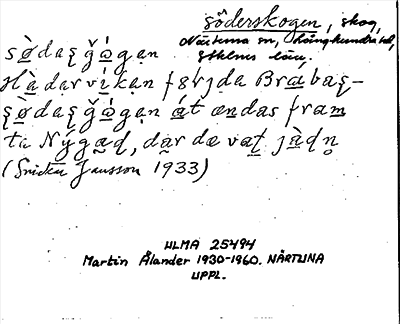 söderskogen, skog,
Närtuna sn, Långhundra hd,
Sthlms län.
sø̀daʂğǻgan
Hàdarvíkan følʝda Brabaʂ-
ʂø̀daʂğǻgan át ændas fram
te Nýgæḍ, dar dæ vaṭ jàḍn̥
(Snickar Jansson 1933)
ULMA 25494
Martin Ålander 1930-1960. NÄRTUNA
UPPL.